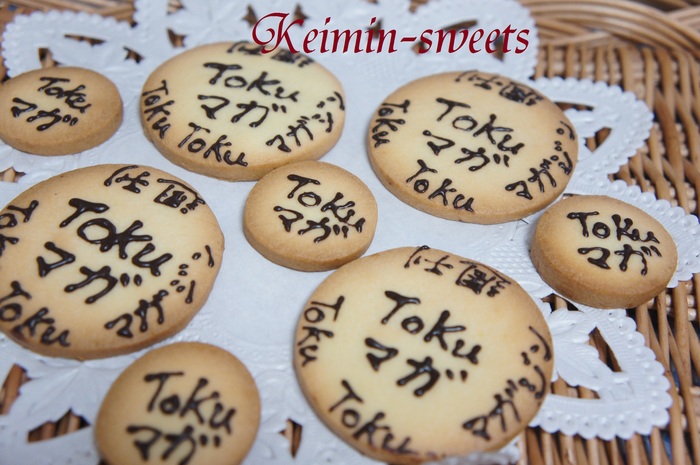 Keimin-sweets
Toku
マガ
仕置
Toku
マガ
マガジン
Toku
Toku
仕置
Toku
Toku
マガ
マガジン
Toku
Toku
マガ
Toku
マガ
仕置
Toku
マガ
マガジン
Toku
仕置
Toku
Toku
マガ
マガジン
Toku
Toku
マガ